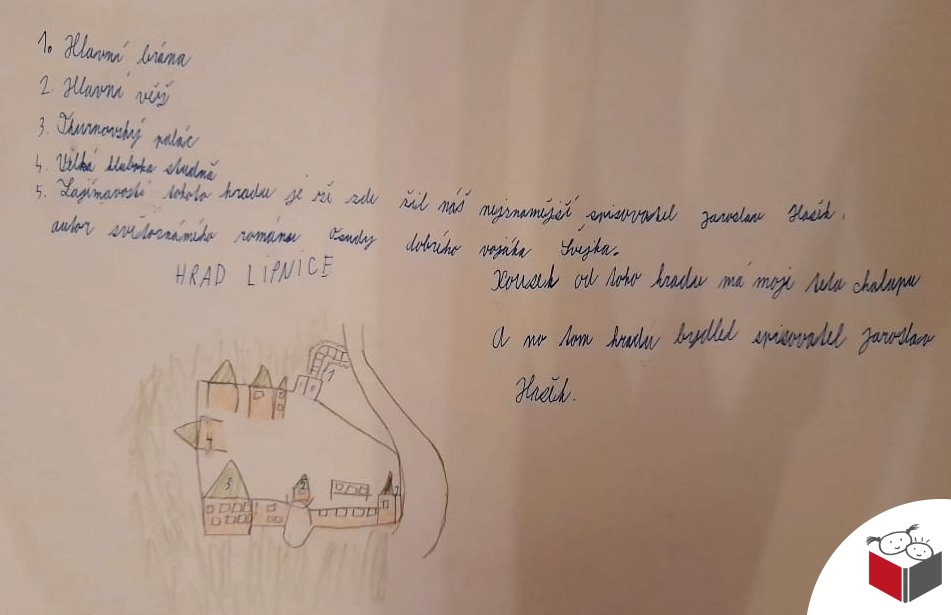 1. Hlavní brána
2. Hlavní věž
3. Thurnovský palác
4. Velká hluboka studně
5. Zajímavostí tohoto hradu je že zde žil náš nejznamější spisovatel Jaroslav Hašek.
autor světoznámého románu Osudy dobrého vojáka Švejka.
HRAD LIPNICE
Kousek od toho hradu má moje teta chalupu
A na tom hradu bydlel spisovatel Jaroslav
Hašek.
1
4
3
5
2